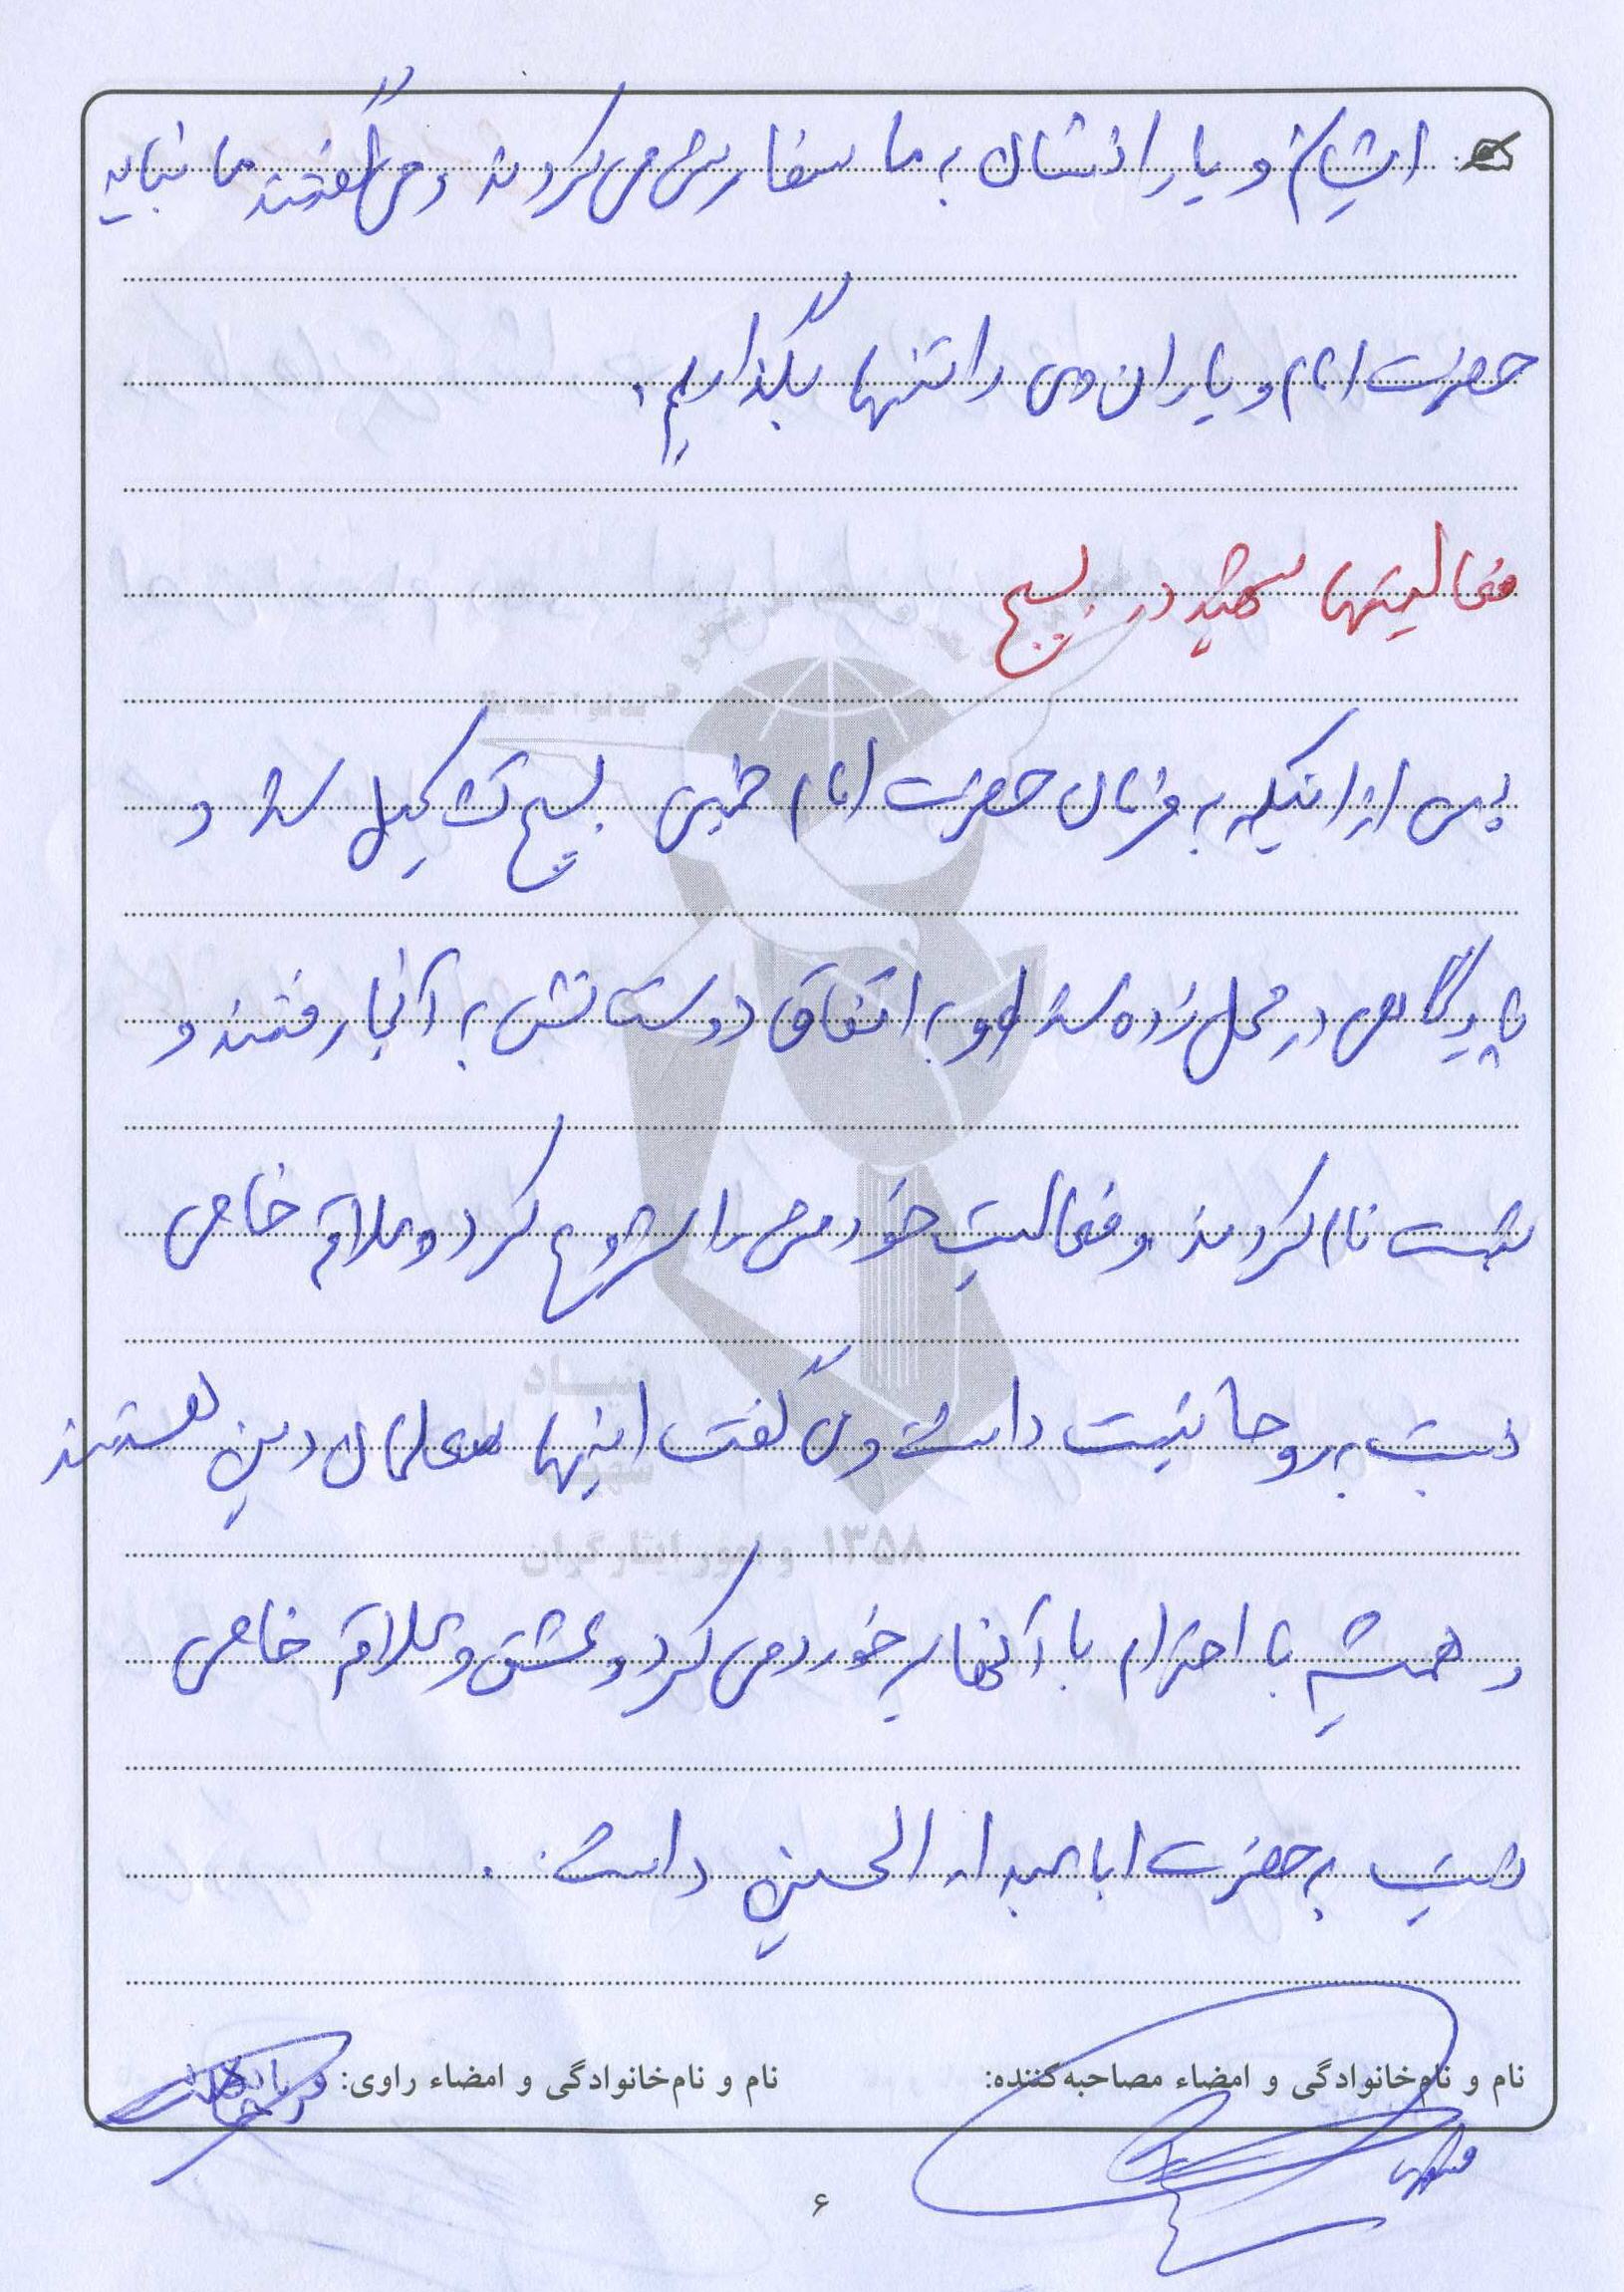 ایشان و یارانشان به ما سفارش می کردند و می گفتند ما نباید
حضرت امام و یاران وی را تنها بگذاریم.
فعالیتها شهید در بسیج
پس از اینکه به فرمان حضرت امام خمینی بسیج تشکیل شد و
پایگاهی در محل زده شد او به اتفاق دوستانش به آنجا رفتند و
ثبت نام کردند و فعالیت خود را شروع کرد و علاقه خاصی
نسبت به روحانیت داشت و می گفت اینها معلمان دین هستند
و همیشه با احترام با آنها برخورد می کرد و عشق و علاقه خاصی
نسبت به حضرت اباعبداله الحسین داشت.
نام و نام‌خانوادگی و امضاء مصاحبه‌کننده:
نام و نام‌خانوادگی و امضاء راوی:
بنیاد
شهید
و امور ایثارگران
۱۳۵۸
۶